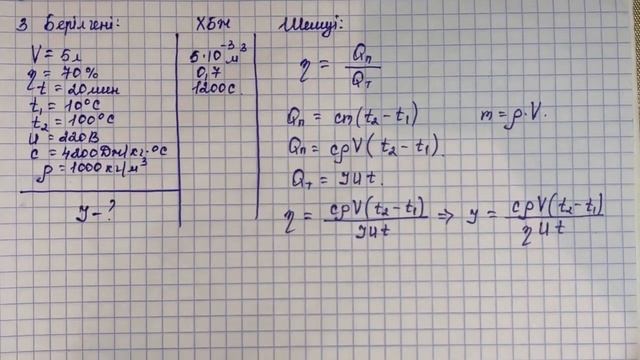 3 Берілгені:
V = 5 л
η = 70 %
t = 20 мин
t₁ = 10°C
t₂ = 100°C
U = 220 В
c = 4200 Дж/кг·°C
ρ = 1000 кг/м³
У - ?
ХБЖ
5·10⁻³ м³
0,7
1200 с.
Шешуі:
η = Qп / Qт
Qп = cm(t₂ - t₁) m = ρ·V.
Qп = cρV(t₂ - t₁).
Qт = УUt.
η = cρV(t₂ - t₁) / УUt ⇒ У = cρV(t₂ - t₁) / ηUt